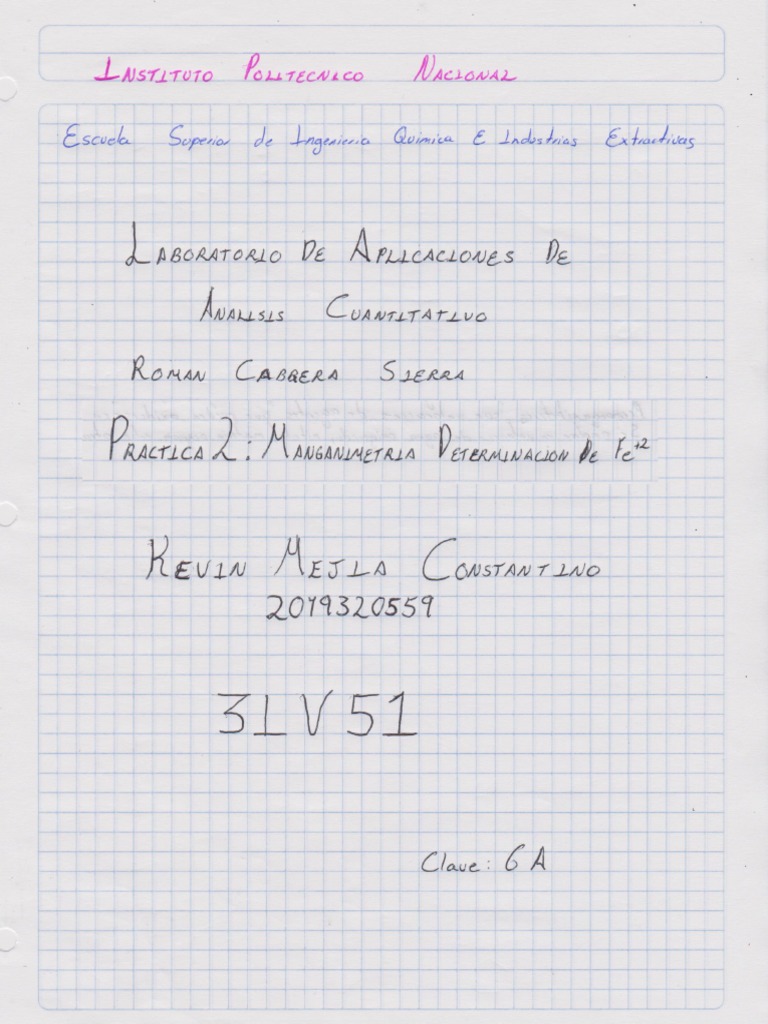 INSTITUTO POLITECNICO NACIONAL
Escuela Superior de Ingenieria Quimica E Industrias Extractivas
LABORATORIO DE APLICACIONES DE
ANALISIS CUANTITATIVO
ROMAN CABRERA SIERRA
PRACTICA 2: MANGANIMETRIA DETERMINACION DE Fe+2
KEVIN MEJIA CONSTANTINO
2019320559
3IV51
Clave: 6 A